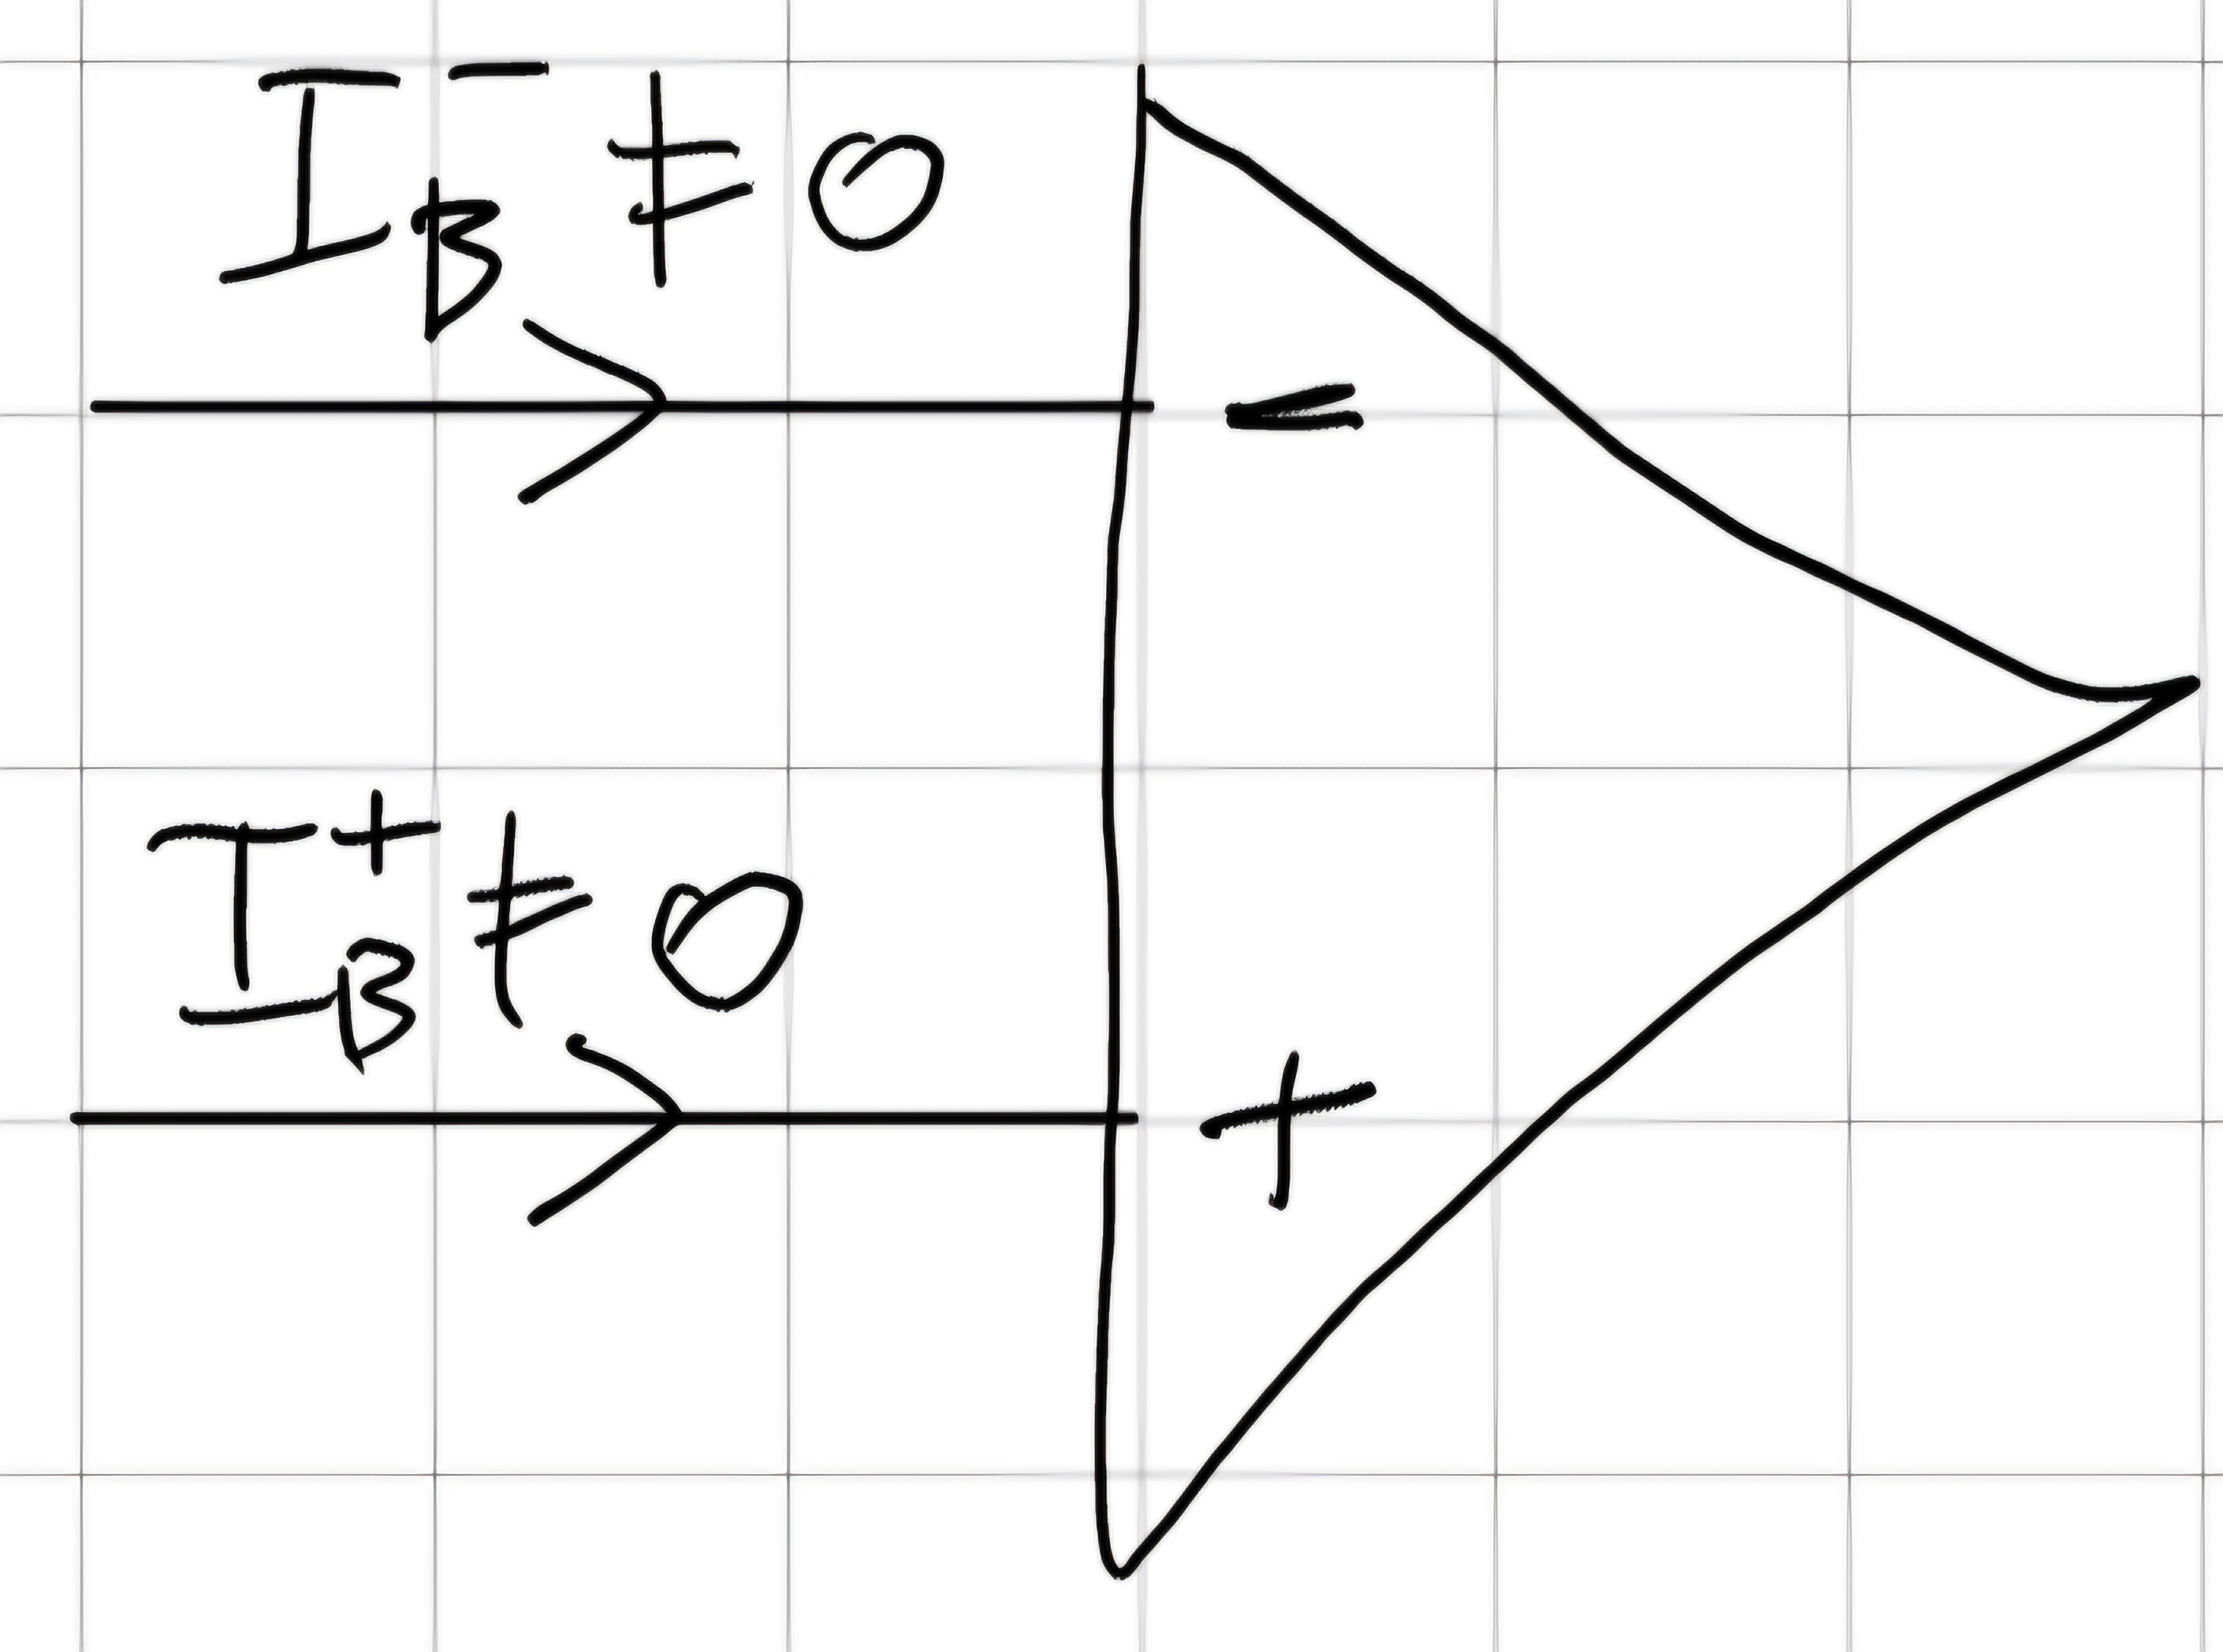 I_B^- ≠ 0
-
I_B^+ ≠ 0
+